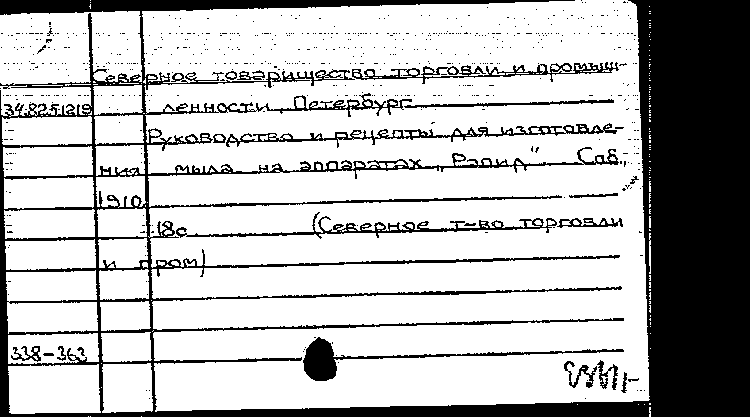 Северное товарищество торговли и промыш-
34.8251219 ленности, Петербург
Руководство и рецепты для изготовле-
ния мыла на аппаратах „Рапид“ Спб.,
1910.
18с. (Северное т-во торговли
и пром)
338-363